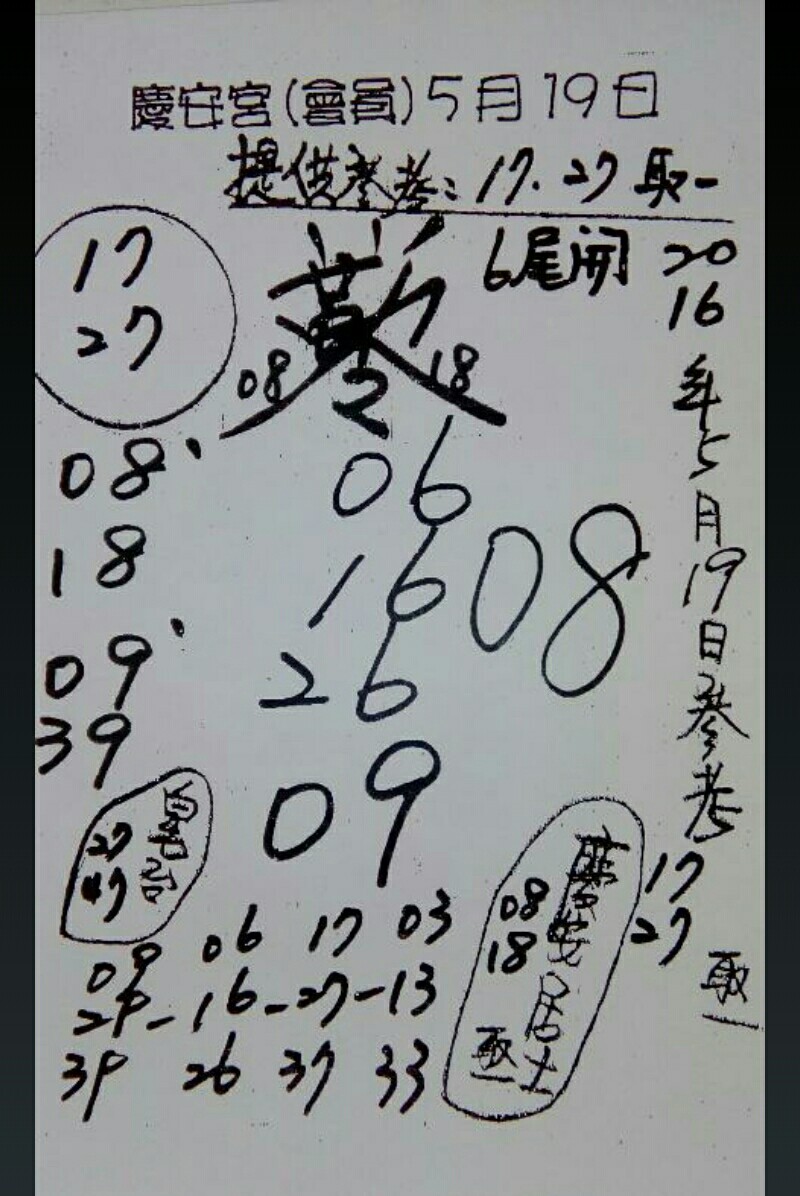 慶安宮(會員)5月19日
提供參考:17.27取一
6尾開
17
27
08 18
2016年5月19日參考
17
27
取一
08
18
09
39
06
16
26
08
09
27
47
慶安居士
08
18
取一
09 06 17 03
29-16-27-13
39 26 37 33